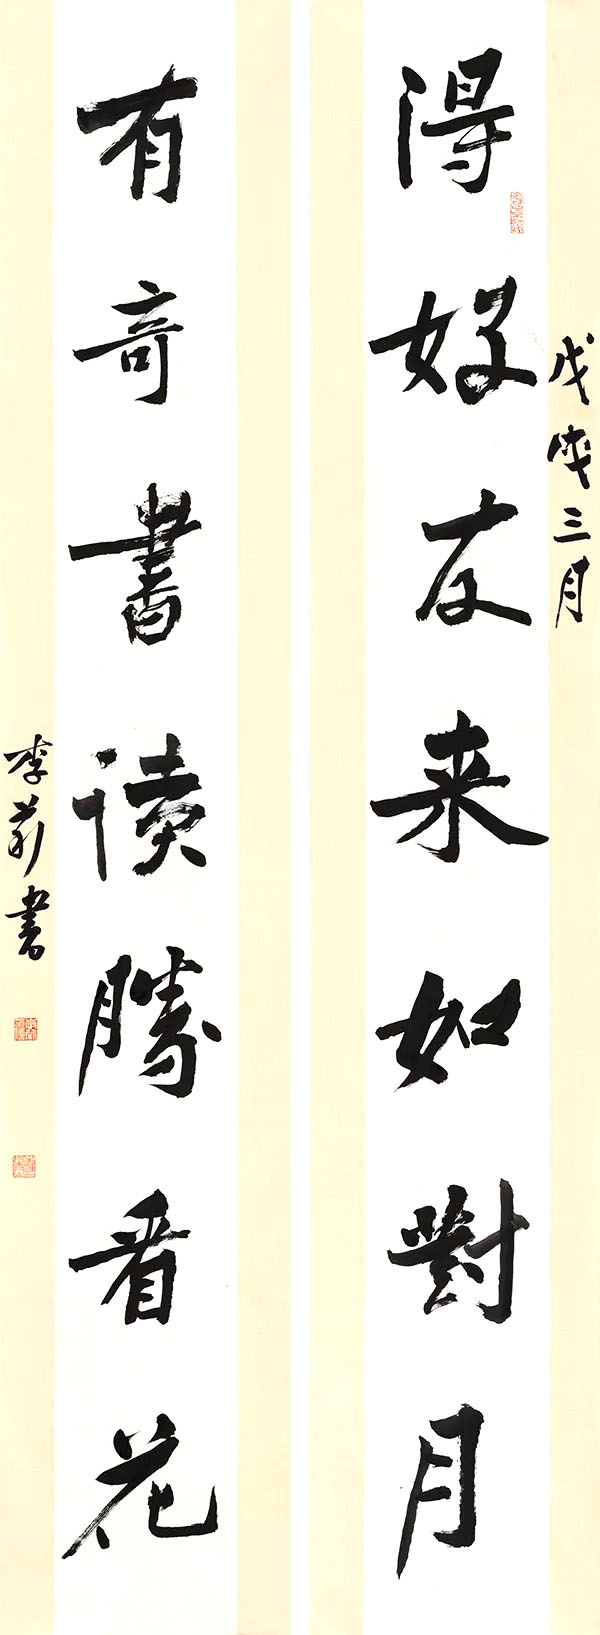 戊戌三月
得好友来如對月
有奇書讀勝看花
李書